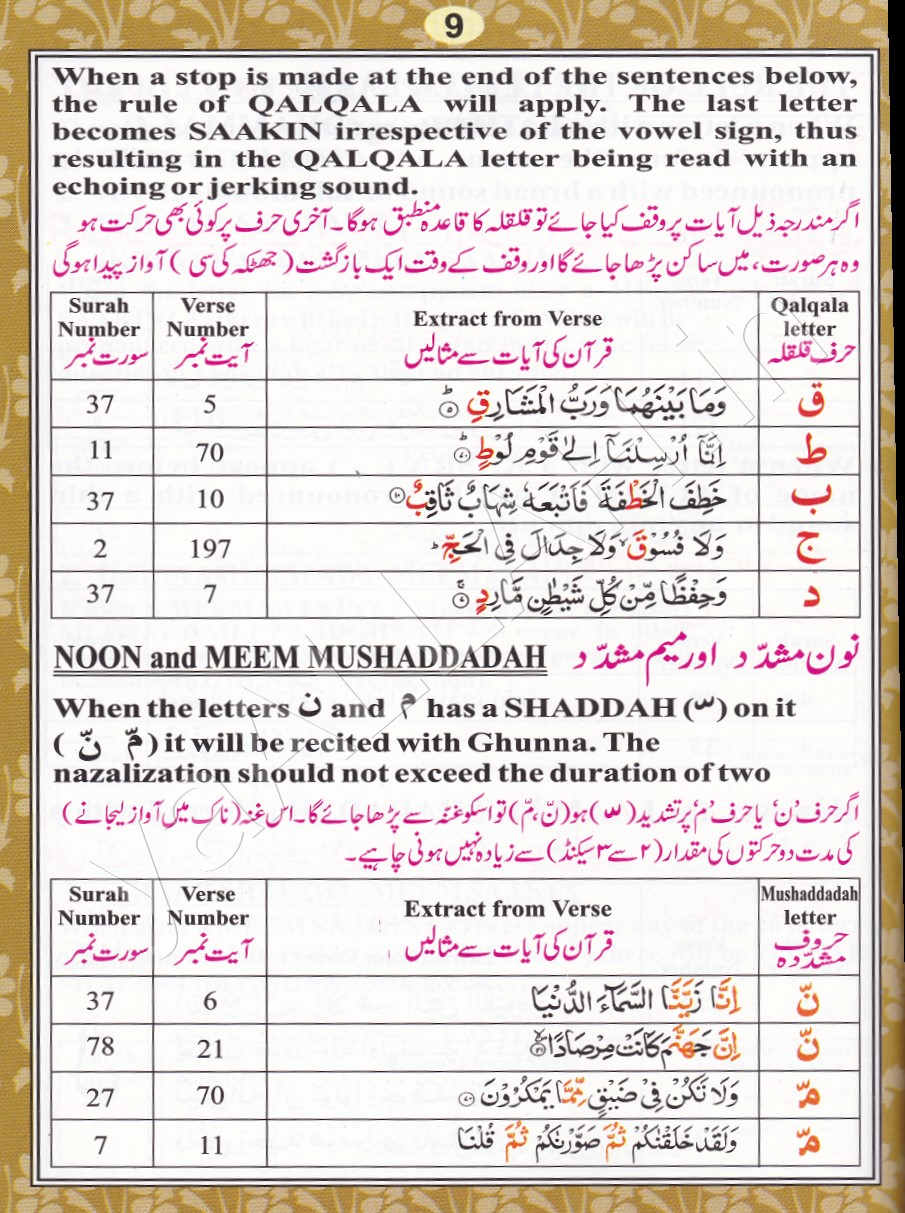 9
When a stop is made at the end of the sentences below,
the rule of QALQALA will apply. The last letter
becomes SAAKIN irrespective of the vowel sign, thus
resulting in the QALQALA letter being read with an
echoing or jerking sound.
اگر مندرجہ ذیل آیات پر وقف کیا جائے تو قلقلہ کا قاعدہ منطبق ہوگا۔ آخری حرف پر کوئی بھی حرکت ہو
وہ ہر صورت، میں ساکن پڑھا جائے گا اور وقف کے وقت ایک بازگشت (جھٹکہ کی سی) آواز پیدا ہوگی
Surah Number سورت نمبر Verse Number آیت نمبر Extract from Verse قرآن کی آیات سے مثالیں Qalqala letter حرف قلقلہ
37 5 وَمَا بَيْنَهُمَا وَرَبُّ الْمَشَارِقِ ۵ ق
11 70 اِنَّاۤ اُرْسِلْنَاۤ اِلٰى قَوْمِ لُوْطٍ ۷۰ ط
37 10 خَطِفَ الْخَطْفَةَ فَاَتْبَعَهٗ شِهَابٌ ثَاقِبٌ ۱۰ ب
2 197 وَلَا فُسُوْقَ وَلَا جِدَالَ فِى الْحَجِّ ط ج
37 7 وَحِفْظًا مِّنْ كُلِّ شَيْطٰنٍ مَّارِدٍ ۷ د
NOON and MEEM MUSHADDADAH نون مشدّد اور میم مشدّد
When the letters ن and م has a SHADDAH (ّ) on it
( نّ مّ ) it will be recited with Ghunna. The
nazalization should not exceed the duration of two
اگر حرف 'ن' یا حرف 'م' پر تشدید (ّ) ہو (نّ، مّ) تو اسکو غنہ سے پڑھا جائے گا۔ اس غنہ (ناک میں آواز لیجانے)
کی مدت دو حرکتوں کی مقدار (۲ سے ۳ سیکنڈ) سے زیادہ نہیں ہونی چاہیے۔
Surah Number سورت نمبر Verse Number آیت نمبر Extract from Verse قرآن کی آیات سے مثالیں Mushaddadah letter حروف مشدّدہ
37 6 اِنَّا زَيَّنَّا السَّمَآءَ الدُّنْيَا نّ
78 21 اِنَّ جَهَنَّمَ كَانَتْ مِرْصَادًا ۲۱ نّ
27 70 وَلَا تَكُنْ فِىْ ضَيْقٍ مِّمَّا يَمْكُرُوْنَ ۷۰ مّ
7 11 وَلَقَدْ خَلَقْنٰكُمْ ثُمَّ صَوَّرْنٰكُمْ ثُمَّ قُلْنَا مّ